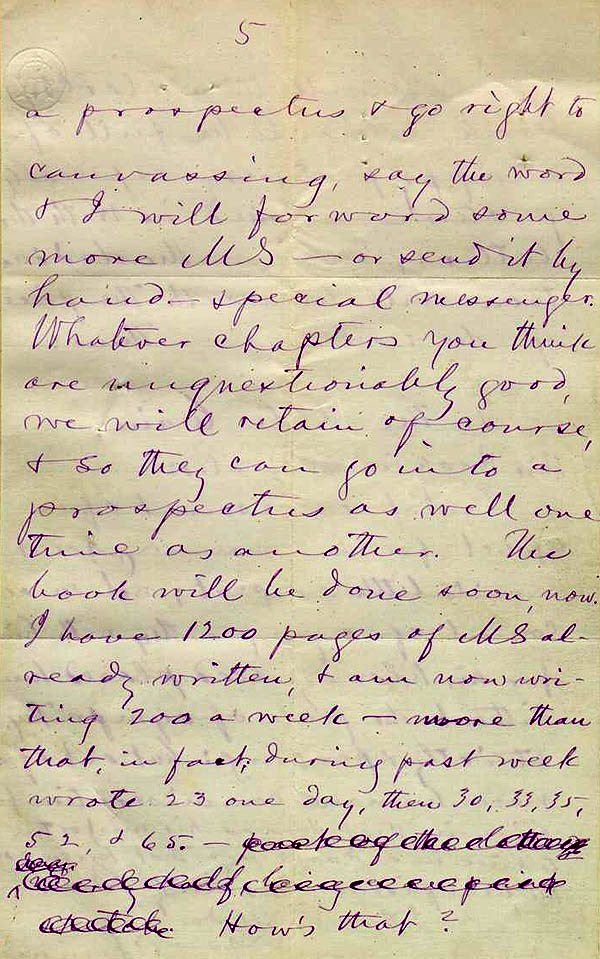 5
a prospectus & go right to
canvassing, say the word
& I will forword some
more MS — or send it by
hand — special messenger.
Whatever chapters you think
are unquestionably good,
we will retain of course,
& so they can go in to a
prospectus as well one
time as another. The
book will be done soon, now.
I have 1200 pages of MS al-
ready written, & am now wri-
ting 200 a week — more than
that, in fact; during past week
wrote 23 one day, then 30, 33, 35,
52, & 65. —
How's that?